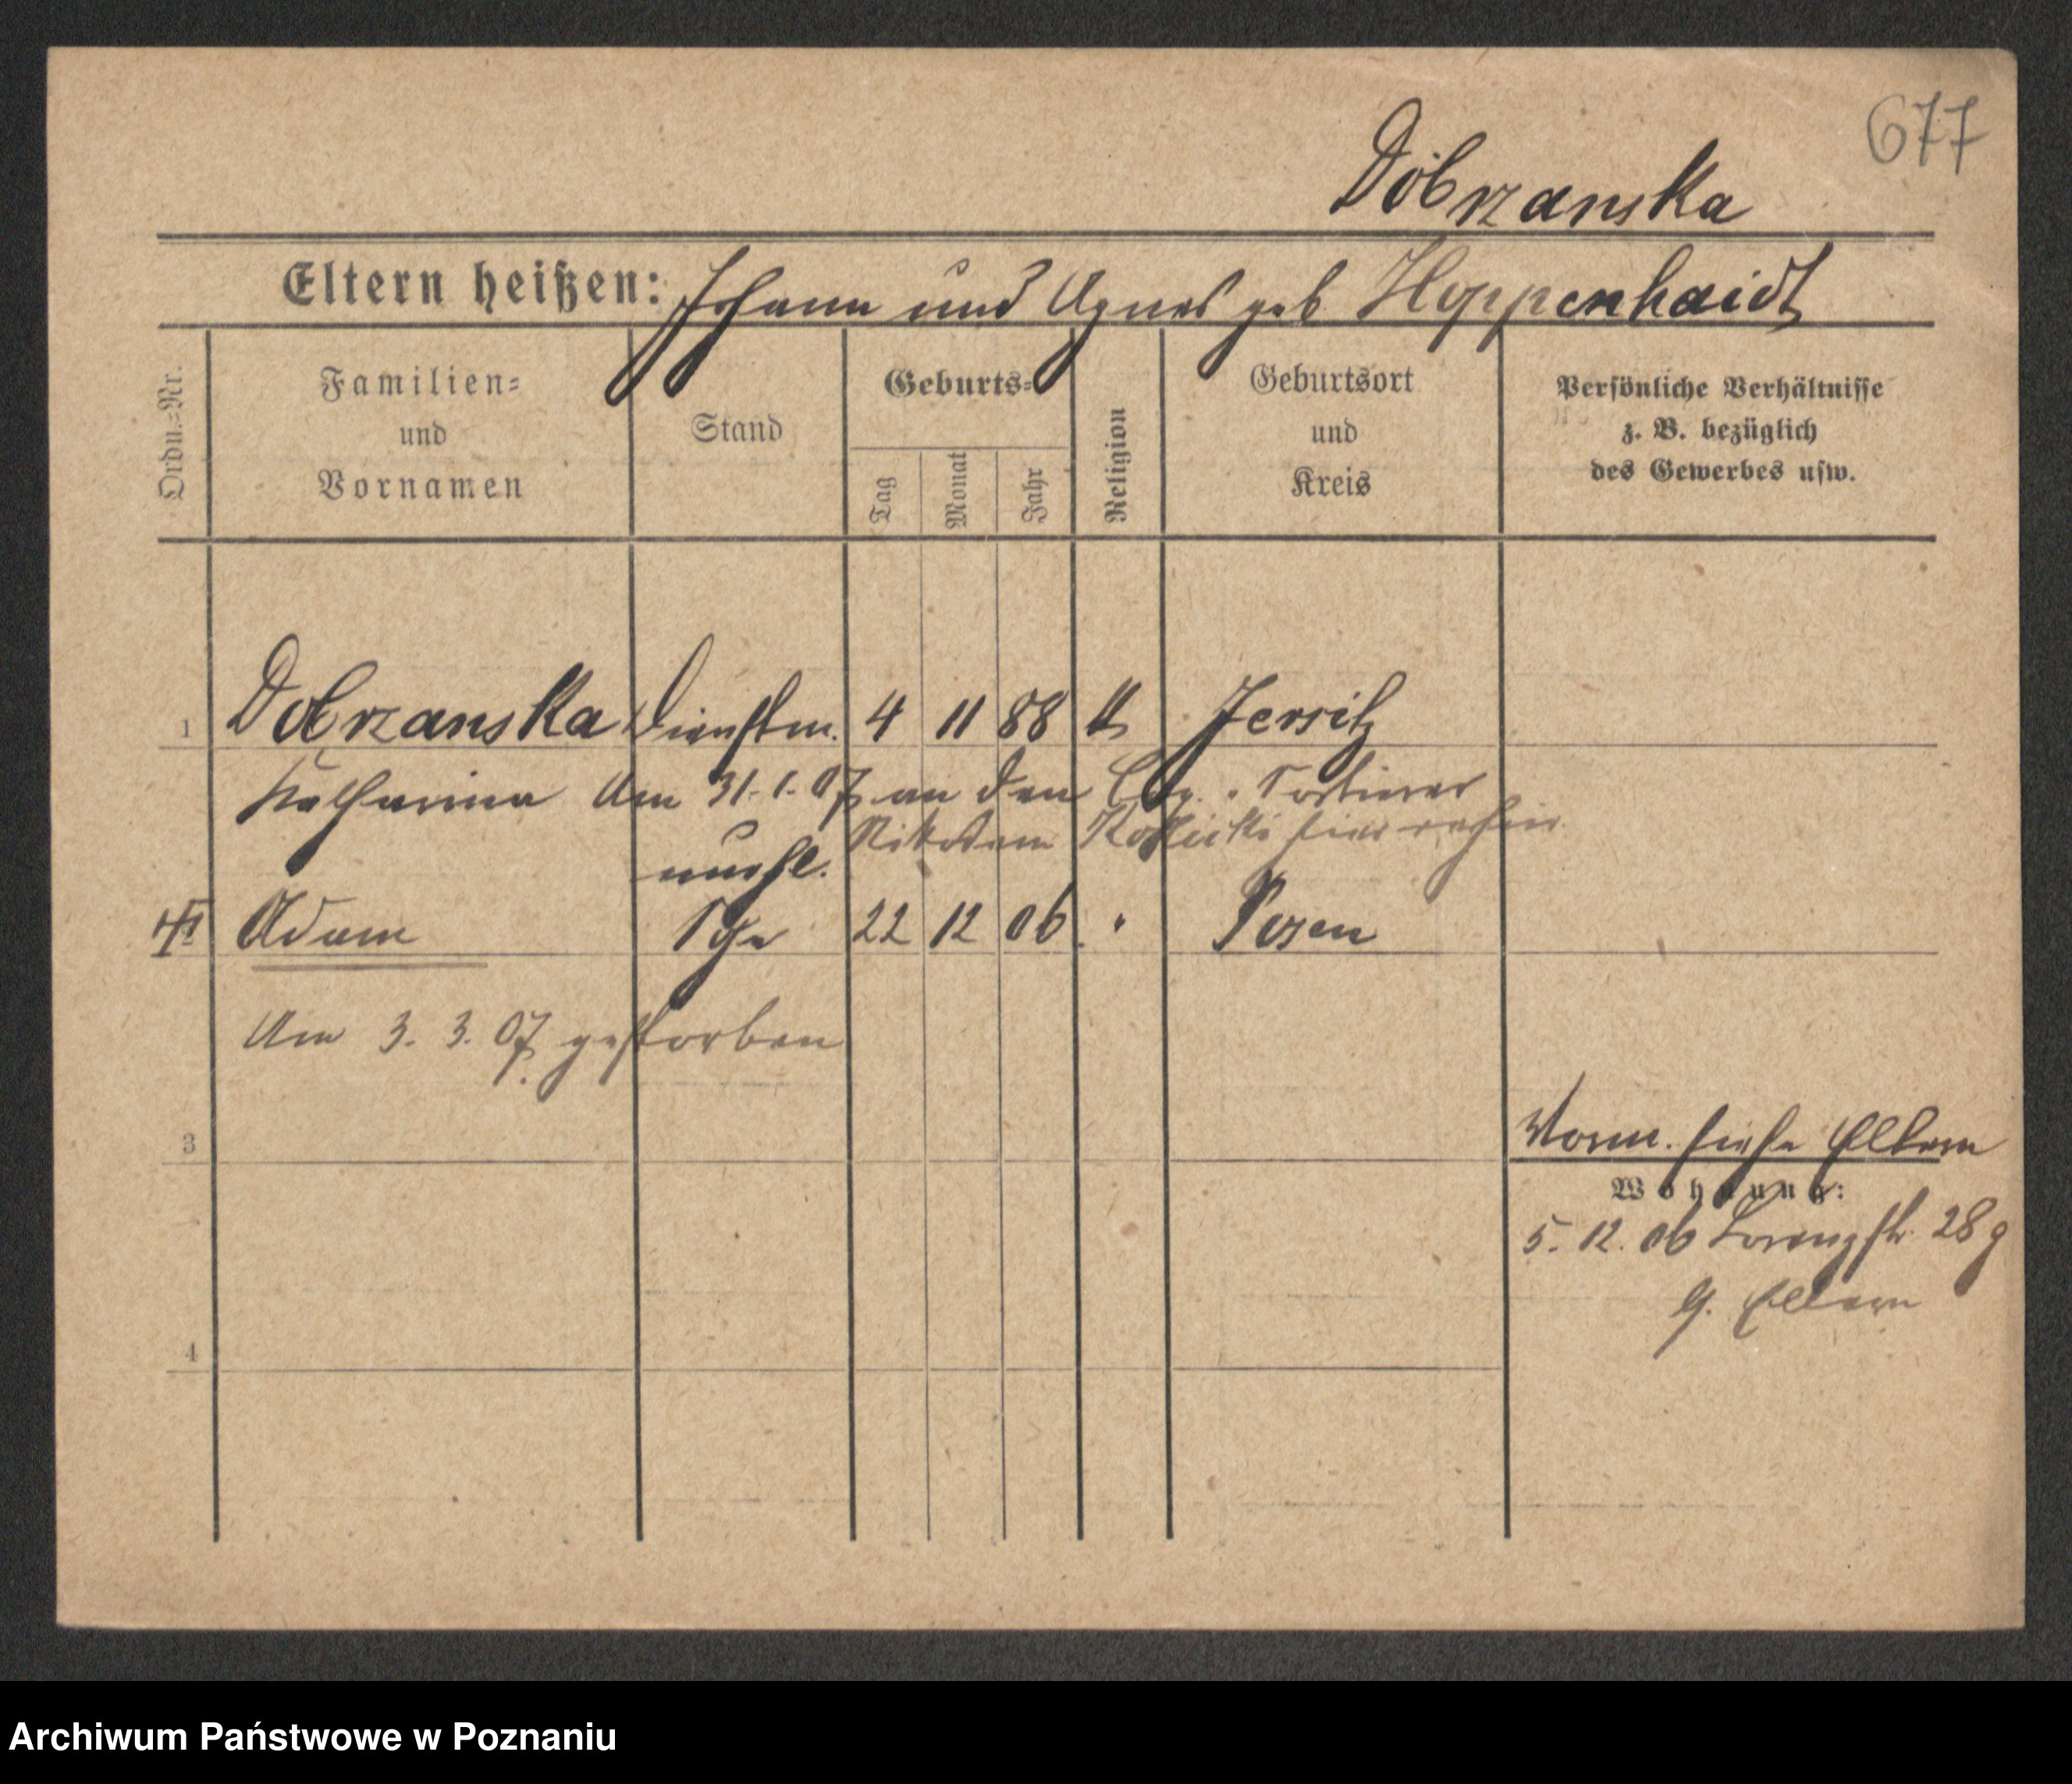 677
Dobrzanska
Eltern heißen: Johann und Agnes geb Hoppenhaidt
Ordn.-Nr.
Familien-
und
Vornamen
Stand
Geburts-
Tag
Monat
Jahr
Religion
Geburtsort
und
Kreis
Persönliche Verhältnisse
z. B. bezüglich
des Gewerbes usw.
1 Dobrzanska Dienstm. 4 11 88 k Jersitz
Katharina Am 31.1.07 an den
Nikodem hier
unehl.
Adam Sohn 22 12 06 " Posen
Am 3. 3. 07 gestorben
3
Vorm. siehe Eltern
Wohnung:
5. 12. 06 Lorenzstr. 28 g
b. Eltern
4
Archiwum Państwowe w Poznaniu